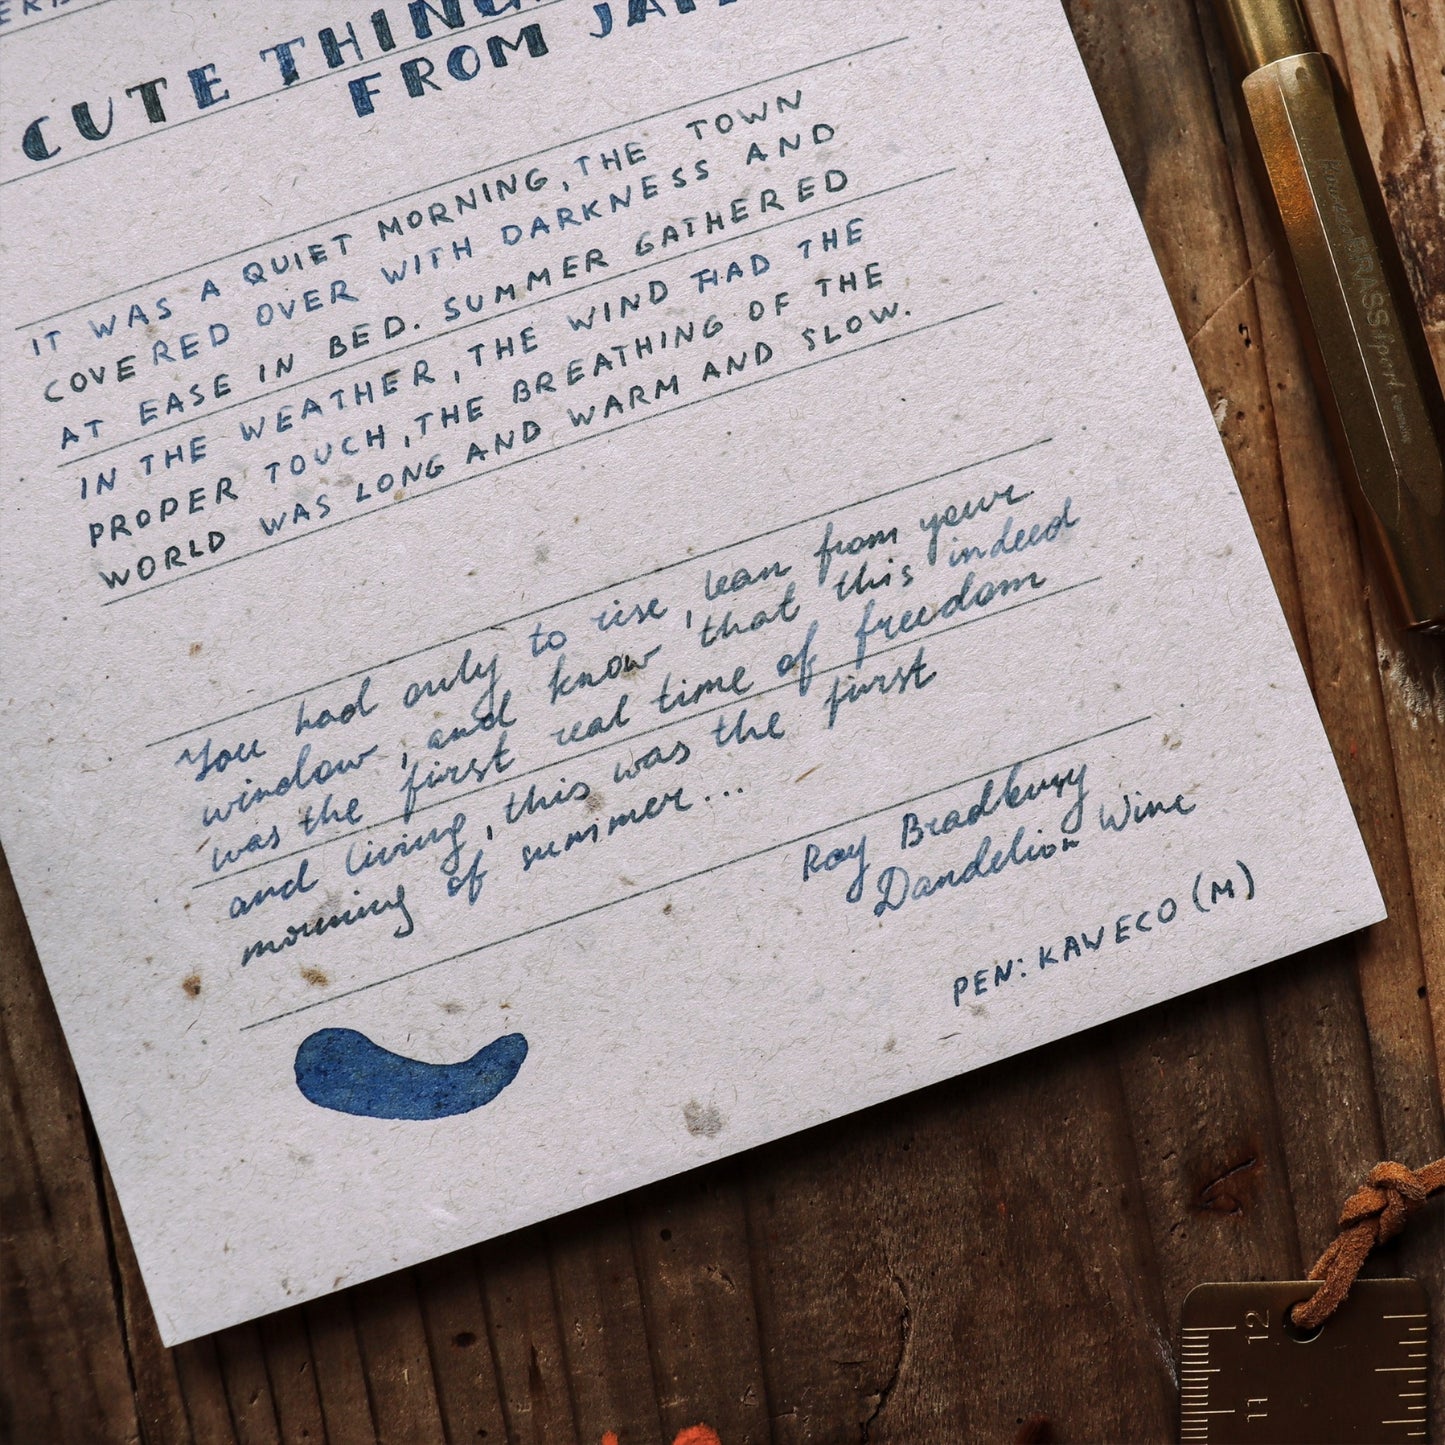 CUTE THING
FROM JA
IT WAS A QUIET MORNING, THE TOWN
COVERED OVER WITH DARKNESS AND
AT EASE IN BED. SUMMER GATHERED
IN THE WEATHER, THE WIND HAD THE
PROPER TOUCH, THE BREATHING OF THE
WORLD WAS LONG AND WARM AND SLOW.
You had only to rise, lean from your
window, and know that this indeed
was the first real time of freedom
and living, this was the first
morning of summer...
Ray Bradbury
Dandelion Wine
PEN: KAWECO (M)
BRASS Sport
12
11